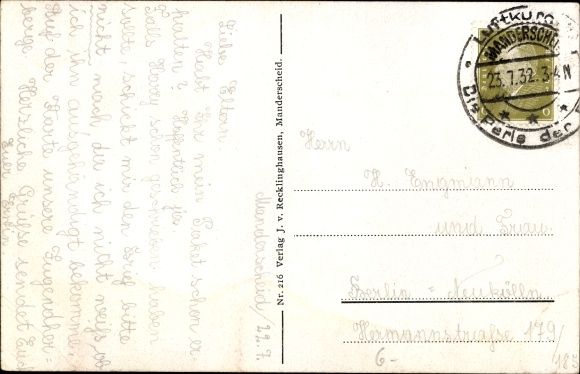 Manderscheid, 22.7.
Liebe Eltern.
Habt Ihr mein Paket schon er=
halten? Hoffentlich ja.
Falls Harry schon geschrieben haben
sollte, schickt mir den Brief bitte
nicht nach, da ich nicht weiß, ob
ich ihn ausgehändigt bekomme.
Auf der Karte unsere Jugendher=
berge. Herzliche Grüße sendet Euch
Euer
Nr. 216 Verlag J. v. Recklinghausen, Manderscheid.
Luftkurort
MANDERSCHEID
23.7.32.3-4N
Die Perle der
Herrn
H. Engmann
und Frau
Berlin=Neukölln
Hermannstraße 179/
183
6-